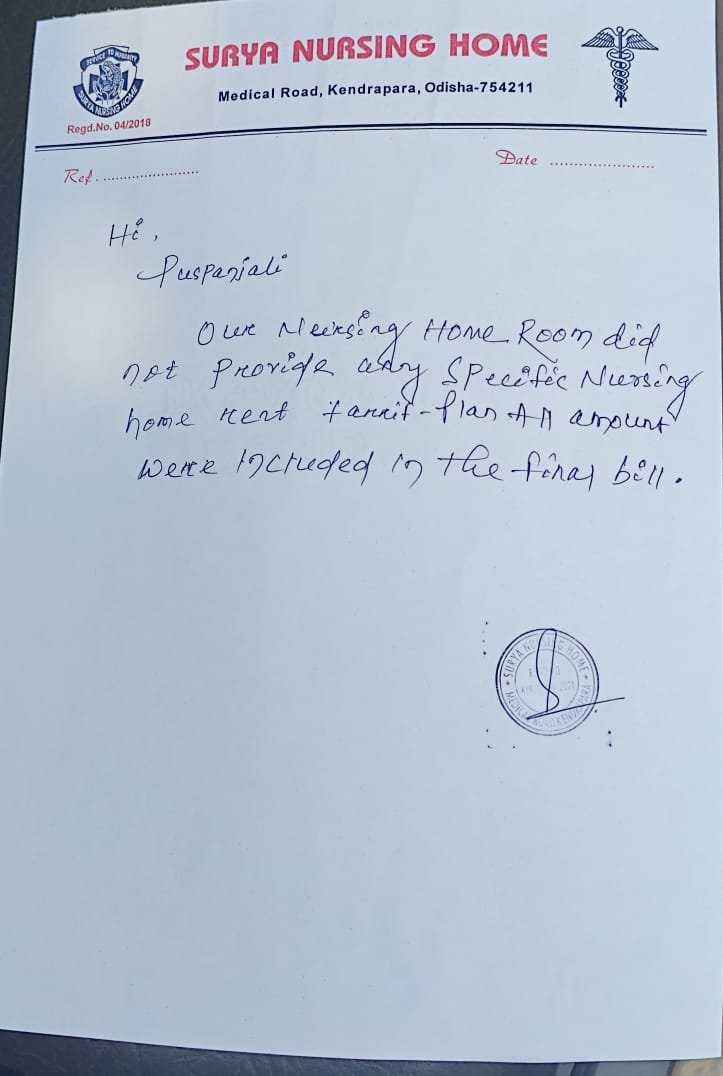 SERVICE TO HUMANITY
SURYA NURSING HOME
Regd.No. 04/2018
SURYA NURSING HOME
Medical Road, Kendrapara, Odisha-754211
Ref. ........................
Date ......................
Hi,
Puspanjali
Our Nursing Home Room did
not provide any Specific Nursing
home rent tarrif-plan All amount
were Incruded in the final bill.
SURYA NURSING HOME
MEDICAL ROAD, KENDRAPARA